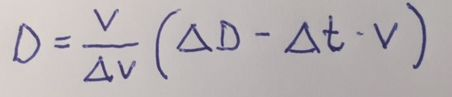 D = V/ΔV (ΔD - Δt · V)